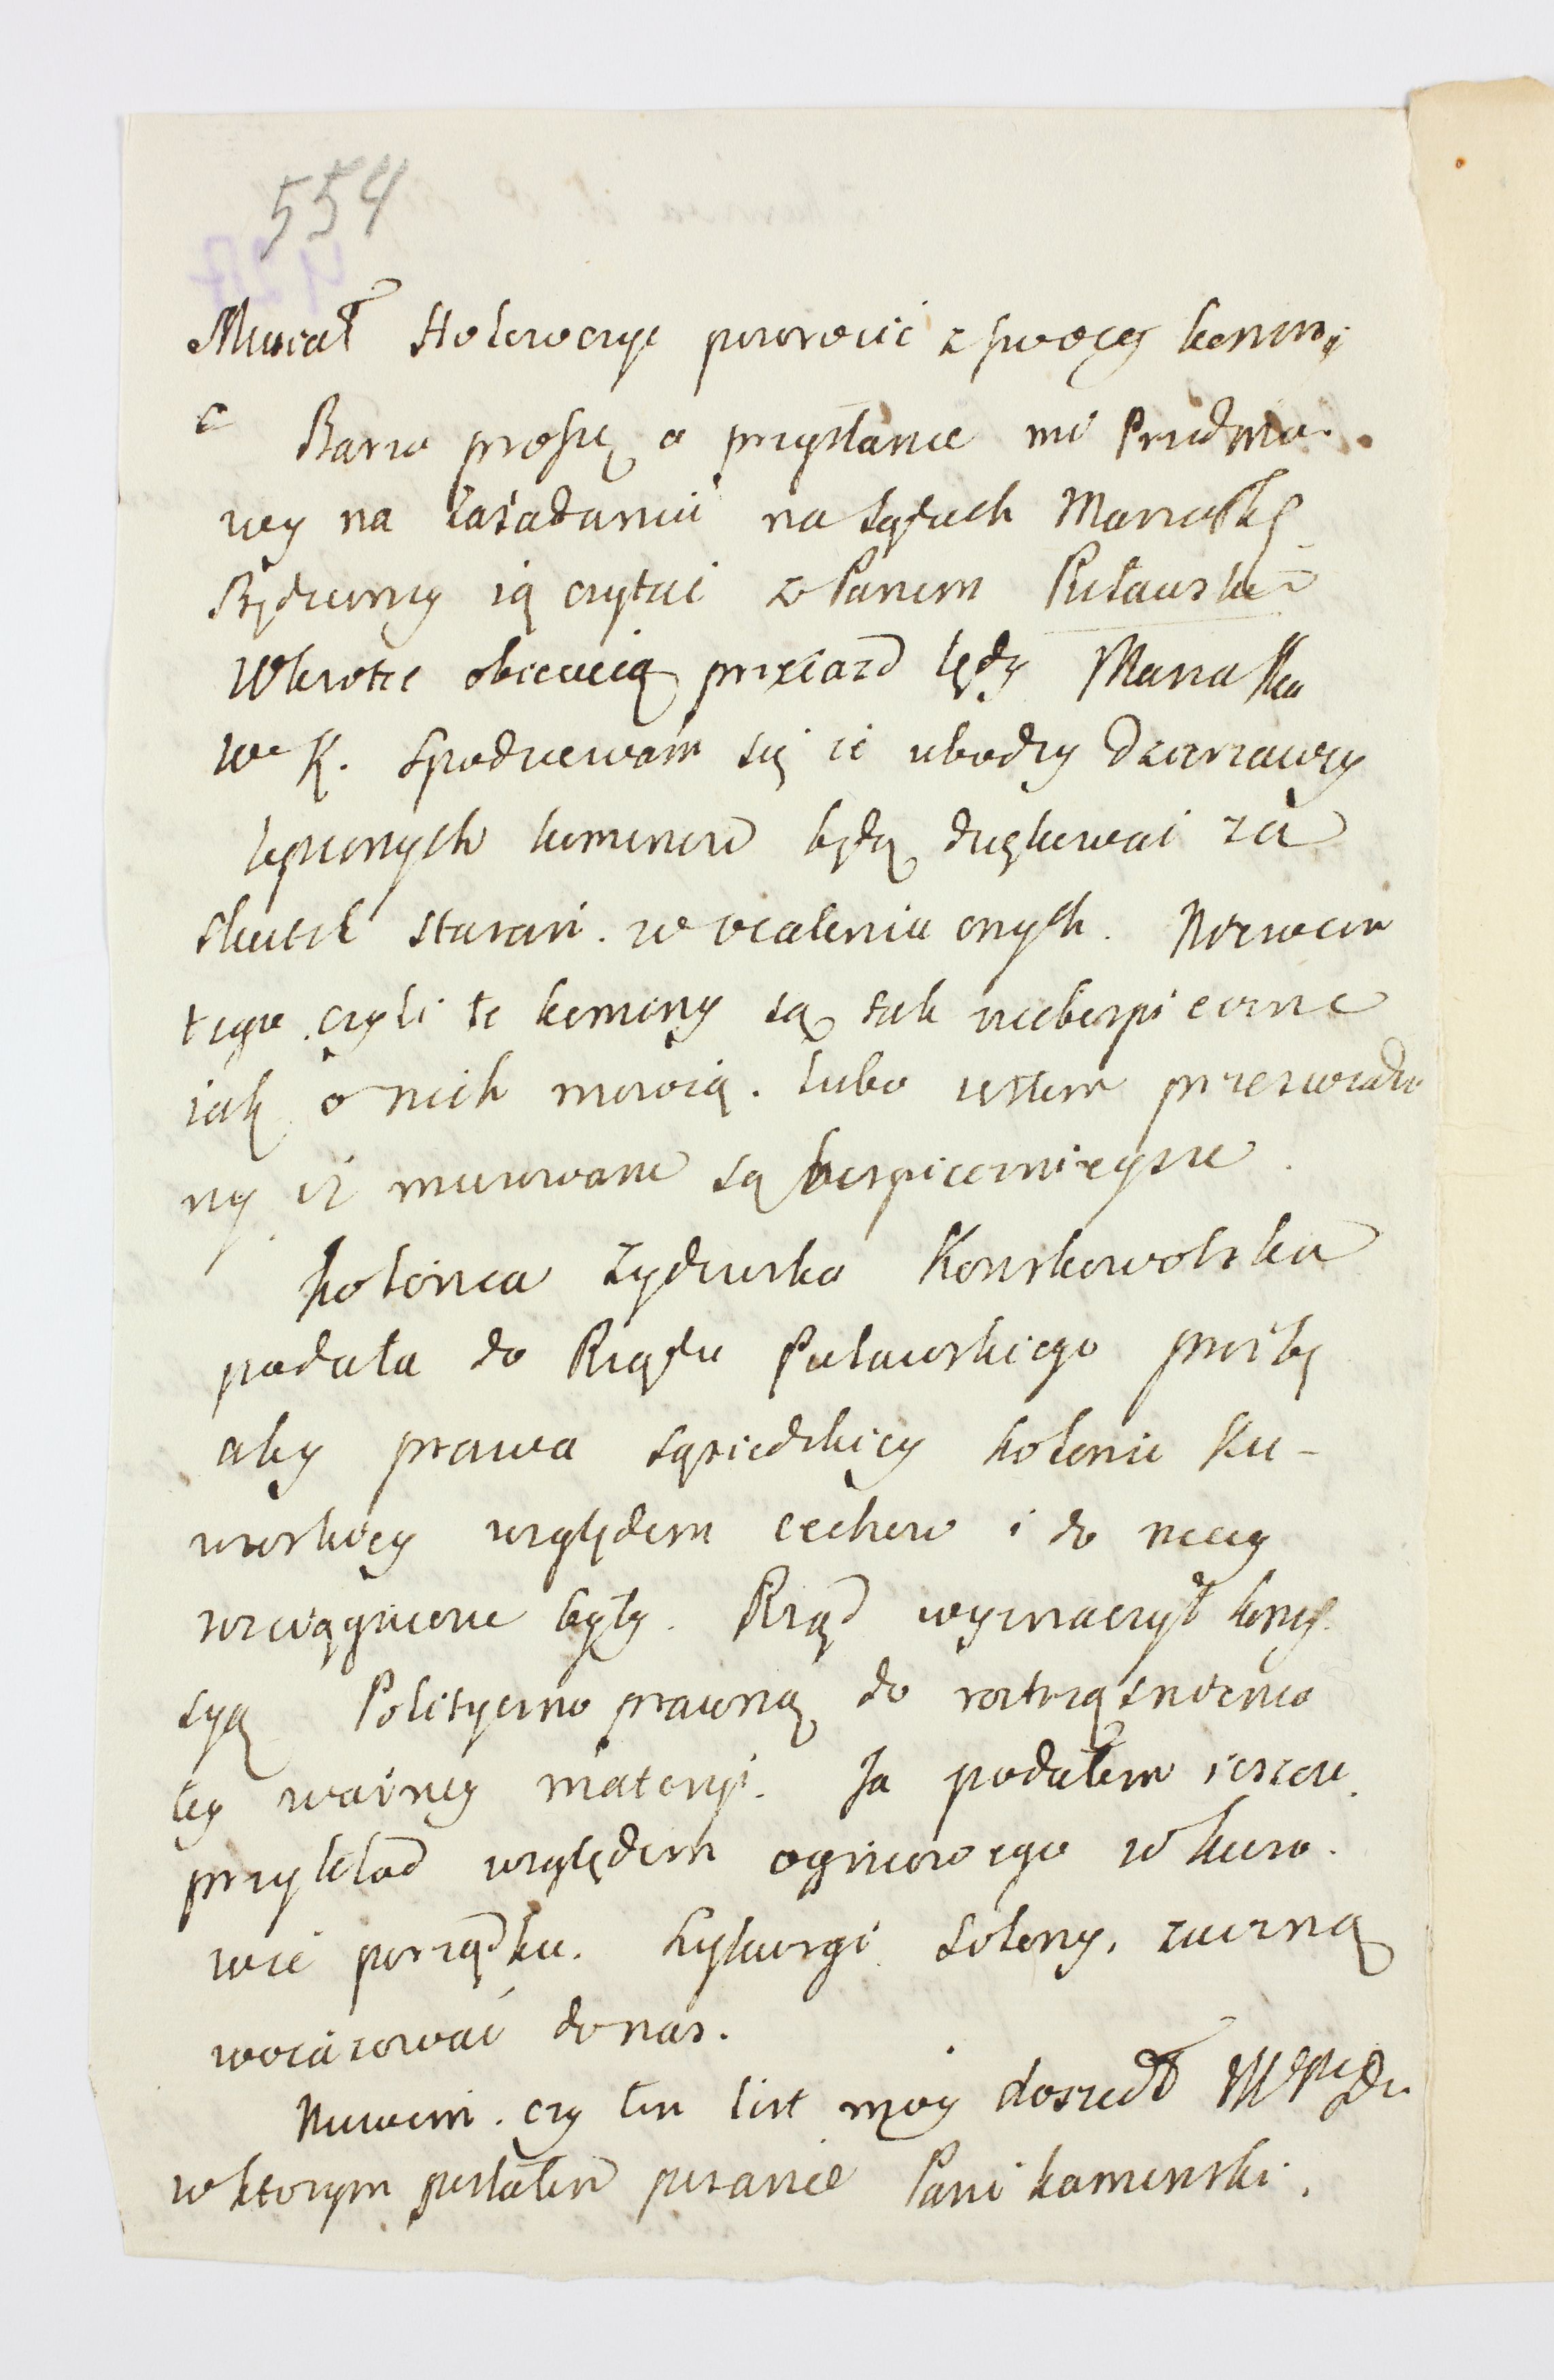 554
427
Musiał Holowczyc powrocić z swoey kommi
c Barzo proszę o przysłanie mi Przedmo.
wy na zasadaniu na Sądach Marszałk
Będziemy ią czytać z Panem Puławsk
Wkrotce obiecuią przeiazd tędy Marszałka
W K. Spodziewam się iż ubodzy Dzierzawcy
lepionych kominow będą dziękować za
skutek starań. w ocaleniu onych. Nic wiem
tego. czyli te kominy są tak niebespieczne
iak o nich mowią. lubo iestem przeswiadczo
ny iż murowane są bespiecznieysze.
Kolonia Zydowska Konskowolska
podała do Rządu Puławskiego prozbę
aby prawa sąsiedzkiey kolonii Ku-
rowskiey względem cechow i do niey
rozciągnione były. Rząd wyznaczył komis
syą Polityczno prawną do roztrząsnienia
tey ważney materyi. Ja podałem ieszcze
przykład względem ogniowego w Kuro.
wie porządku. Lykurgi Solony, zaczną
woiażować do nas.
Niewiem. czy ten list moy doszedł
w ktorym posłałem pisanie Pani Kaminski.